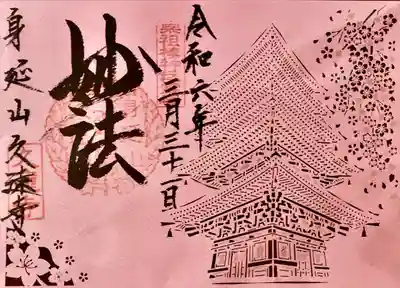 令和六年
三月三十一日
妙法
身延山久遠寺